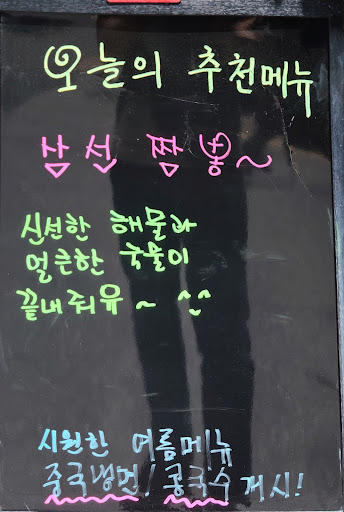 오늘의 추천메뉴
삼선 짬뽕~
신선한 해물과
얼큰한 국물이
끝내줘유~ ^^
시원한 여름메뉴
중국냉면! 콩국수 개시!